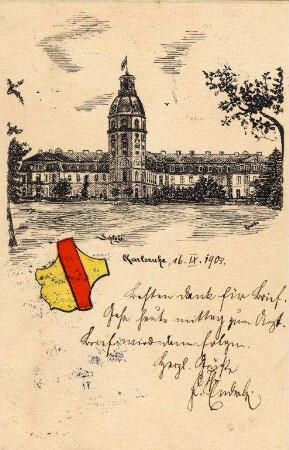 Schloß
Karlsruhe, 16. IX. 1903.
Besten Dank für Brief.
Gehe heute mittag zum Arzt.
Brief wird dann folgen.
Herzl. Grüße